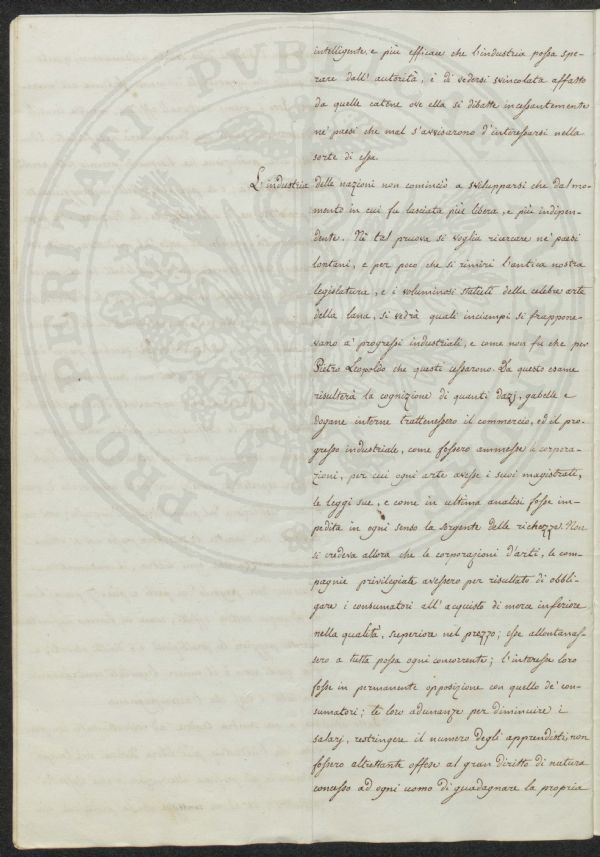 intelligente, e più efficace che l'industria possa spe-
rare dall' autorità, è di vedersi svincolata affatto
da quelle catene ove ella si dibatte incessantemente
ne' paesi che mal s'avvisarono d'interessarsi nella
sorte di esse.
L'industria delle nazioni non cominciò a svilupparsi che dal mo-
mento in cui fu lasciata più libera, e più indipen-
dente. Nè tal pruova si voglia ricercare ne' paesi
lontani, e per poco che si rimiri l'antica nostra
legislatura, e i voluminosi statuti della celebre arte
della lana, si vedrà quali inciempi si frappone-
vano a' progressi industriali, e come non fu che per
Pietro Leopoldo che questi cessarono. Da questo esame
risulterà la cognizione di quanti dazj, gabelle e
dogane interne trattenessero il commercio, ed il pro-
gresso industriale, come fossero ammesse le corpora-
zioni, per cui ogni arte avesse i suoi magistrati,
le leggi sue, e come in ultima analisi fosse im-
pedita in ogni senso la sorgente delle richezze. Non
si credeva allora che le corporazioni d'arti, le com-
pagnie privilegiate avessero per risultato di obbli-
gare i consumatori all' acquisto di merce inferiore
nella qualità, superiore nel prezzo; esse allontanas-
sero a tutta possa ogni concorrente; l'interesse loro
fosse in permanente opposizione con quello de' con-
sumatori; le loro adunanze per diminuire i
salarj, restringere il numero degli apprendisti, non
fossero altrettante offese al gran diritto di natura
concesso ad ogni uomo di guadagnare la propria
PROSPERITATI PVBLICAE